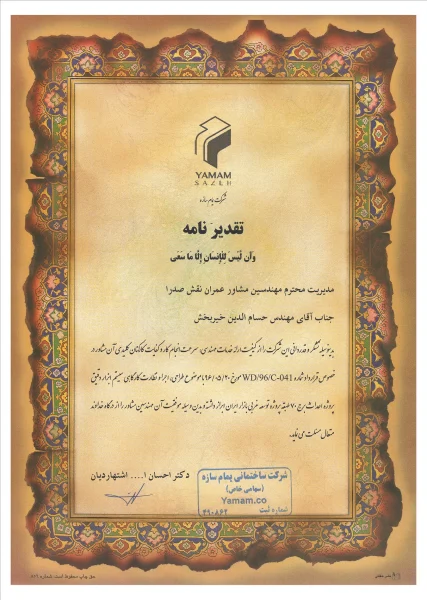 YAMAM
SAZEH
شرکت یمام سازه
تقدیر نامه
وَاَن لَیسَ لِلاِنسانِ اِلّا ما سَعی
مدیریت محترم مهندسین مشاور عمران نقش صدرا
جناب آقای مهندس حسام الدین خیربخش
بدینوسیله تشکر و قدردانی این شرکت را از کیفیت ارائه خدمات مهندسی، سرعت انجام کار و کفایت کارکنان کلیدی آن مشاور در
خصوص قرارداد شماره WD/96/C-041 مورخ ۹۶/۰۵/۲۰ با موضوع طراحی، اجرا و نظارت کارگاهی سیستم ابزار دقیق
پروژه احداث برج ۷۰ طبقه پروژه توسعه غربی بازار ایران ابراز داشته و بدین وسیله موفقیت آن مهندسین مشاور را از درگاه خداوند
متعال مسئلت می نماید.
دکتر احسان ا.... اشتهاردیان
شرکت ساختمانی یمام سازه
(سهامی خاص)
Yamam.co
شماره ثبت
۴۹۰۸۶۴
حق چاپ محفوظ است شماره